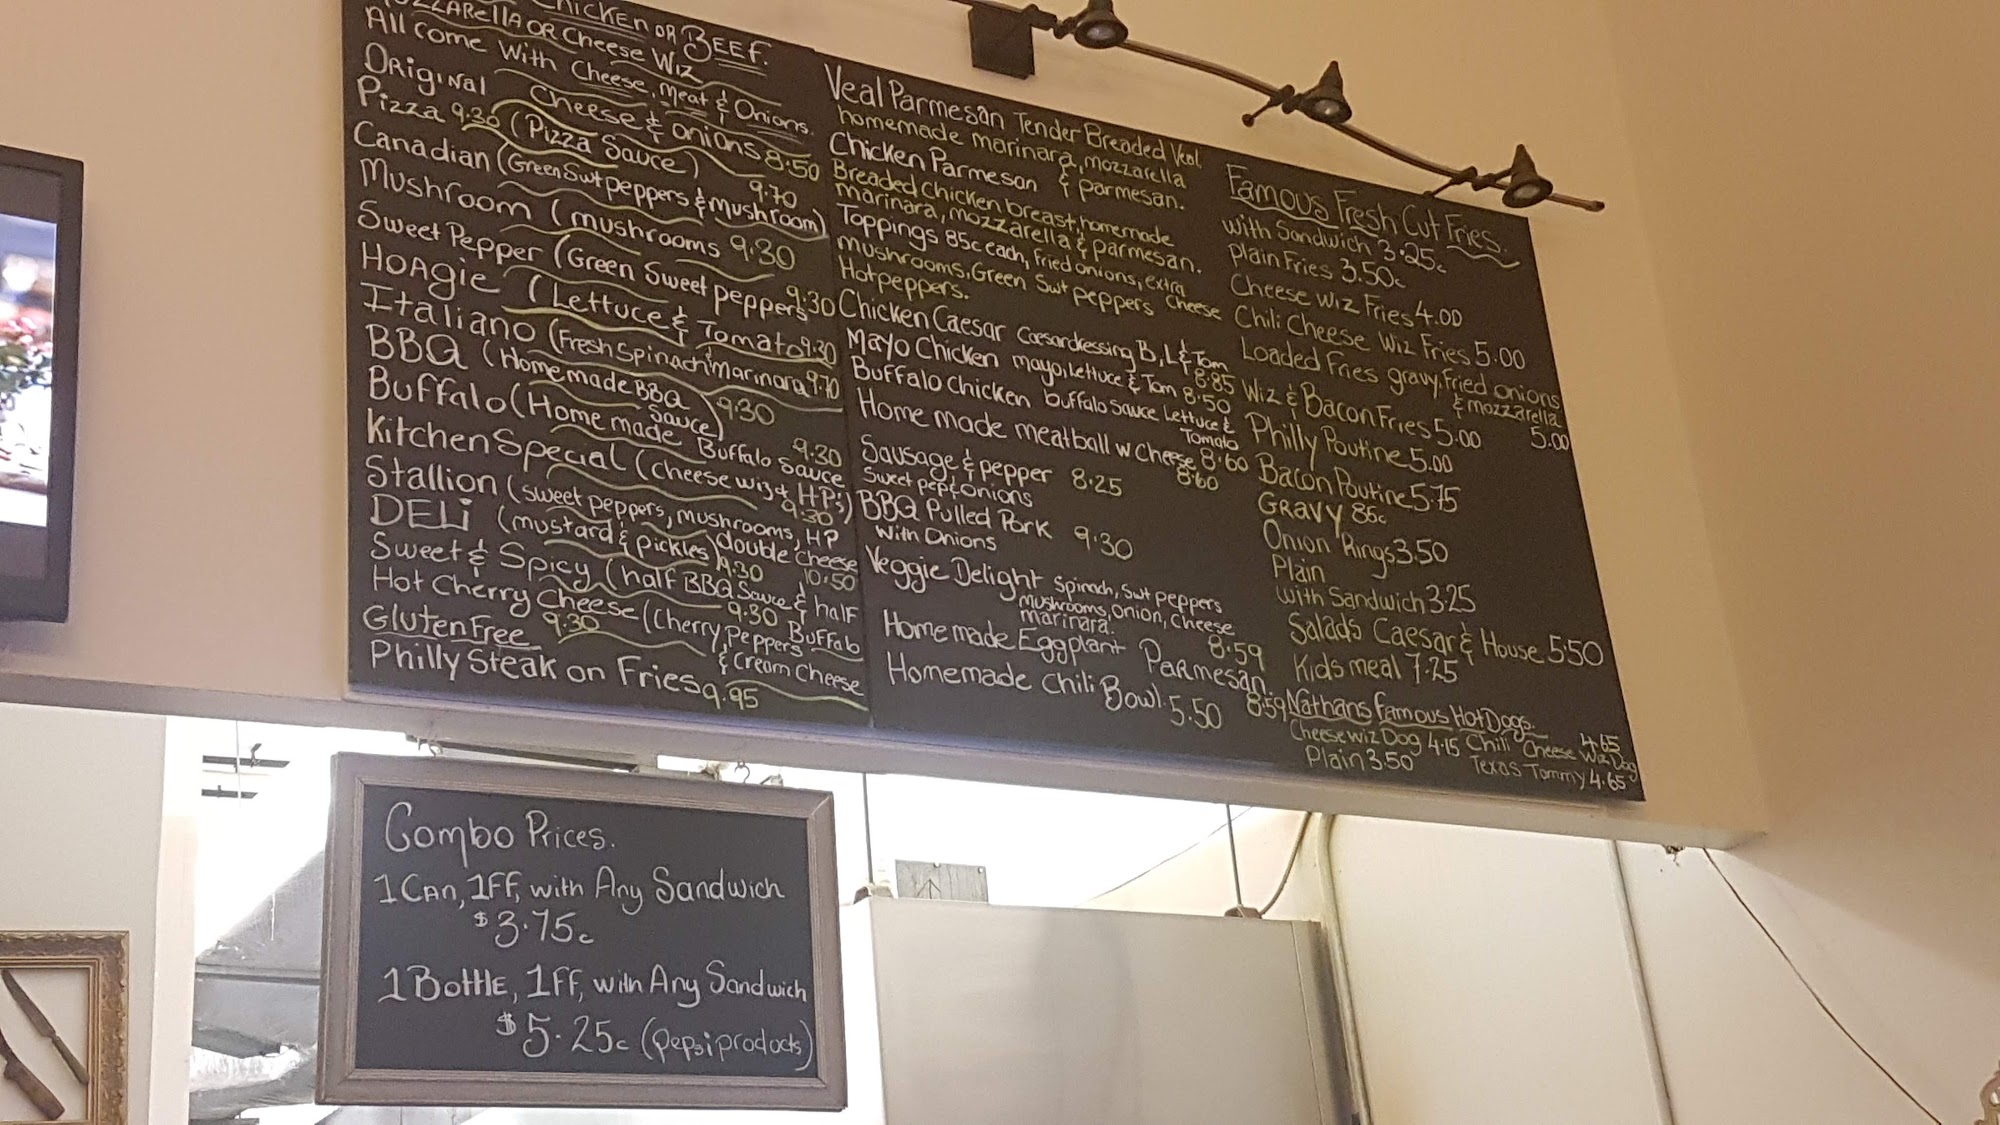 CHICKEN OR BEEF.
MOZZARELLA OR Cheese Wiz
All Come With Cheese, Meat & Onions.
Original Cheese & onions 8.50
Pizza 9.30 (Pizza Sauce)
9.70
Canadian (Green Swt peppers & mushroom)
Mushroom (mushrooms 9.30
Sweet Pepper (Green Sweet peppers 9.30
HOAgie (Lettuce & Tomato 9.30
Italiano (Fresh Spinach marinara 9.70
BBQ (Homemade BBQ Sauce) 9.30
Buffalo (Home made Buffalo sauce 9.30
Kitchen Special (cheese wiz & HP's) 9.30
Stallion (sweet peppers, mushrooms, HP double cheese 10.50
DELi (mustard & pickles) 9.30
Sweet & Spicy (half BBQ Sauce & half Buffalo 9.30
Hot Cherry Cheese (Cherry, Peppers & Cream Cheese
Gluten Free 9.30
Philly Steak on Fries 9.95
Veal Parmesan Tender Breaded Veal,
homemade marinara, mozzarella
& parmesan.
Chicken Parmesan
Breaded Chicken breast, homemade
marinara, mozzarella & parmesan.
Toppings 85c each, Fried onions, extra Cheese
mushrooms, Green Swt peppers
Hot peppers.
Chicken Caesar Caesar dressing B, L & Tom 8.85
Mayo Chicken mayo, lettuce & Tom 8.50
Buffalo Chicken buffalo sauce Lettuce &
Tomato 8.60
Home made meatball w Cheese 8.60
Sausage & pepper 8.25
Sweet pep & Onions
BBQ Pulled Pork 9.30
With Onions
Veggie Delight Spinach, Swt peppers
mushrooms, onion, Cheese
marinara. 8.59
Homemade Eggplant Parmesan. 8.59
Homemade Chili Bowl. 5.50
Famous Fresh Cut Fries.
With Sandwich 3.25c
Plain Fries 3.50c
Cheese Wiz Fries 4.00
Chili Cheese Wiz Fries 5.00
Loaded Fries gravy, Fried onions
& mozzarella 5.00
Wiz & Bacon Fries 5.00
Philly Poutine 5.00
Bacon Poutine 5.75
Gravy 86c
Onion Rings 3.50
Plain
With Sandwich 3.25
Salads Caesar & House 5.50
Kids meal 7.25
Nathans Famous Hot Dogs.
Cheese Wiz Dog 4.15 Chili Cheese Wiz Dog 4.65
Plain 3.50 Texas Tommy 4.65
Combo Prices.
1 Can, 1FF, with Any Sandwich
$3.75c
1 Bottle, 1FF, with Any Sandwich
$5.25c (pepsi products)